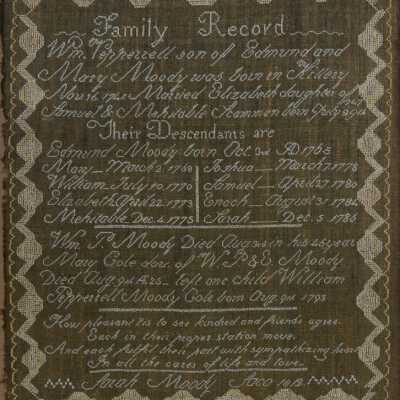 Family Record
Wm. Pepperrell son of Edmund and
Mary Moody was born in Kittery
Married Elizabeth daughter of
Samuel & Mehitable Scammon born
Their Descendants are
Edmund Moody born Oct. 3rd A 1765
Mary March 2 1768 Joshua March 7 1778
William July 10, 1770 Samuel April 27, 1780
Elizabeth April 22, 1773 Enoch August 31 1784
Mehitable Dec. 4 1775 Sarah Dec. 5 1786
Wm P. Moody Died Aug in his 45 year
Mary Cole dau. of W. P & E. Moody
Died Aug 9th left one child William
Pepperrell Moody Cole born Aug. 9th 1793
How pleasant tis to see kindred and friends agree.
Each in their proper station move.
And each fulfil their part with sympathizing heart
In all the cares of life and love.
Sarah Moody Saco